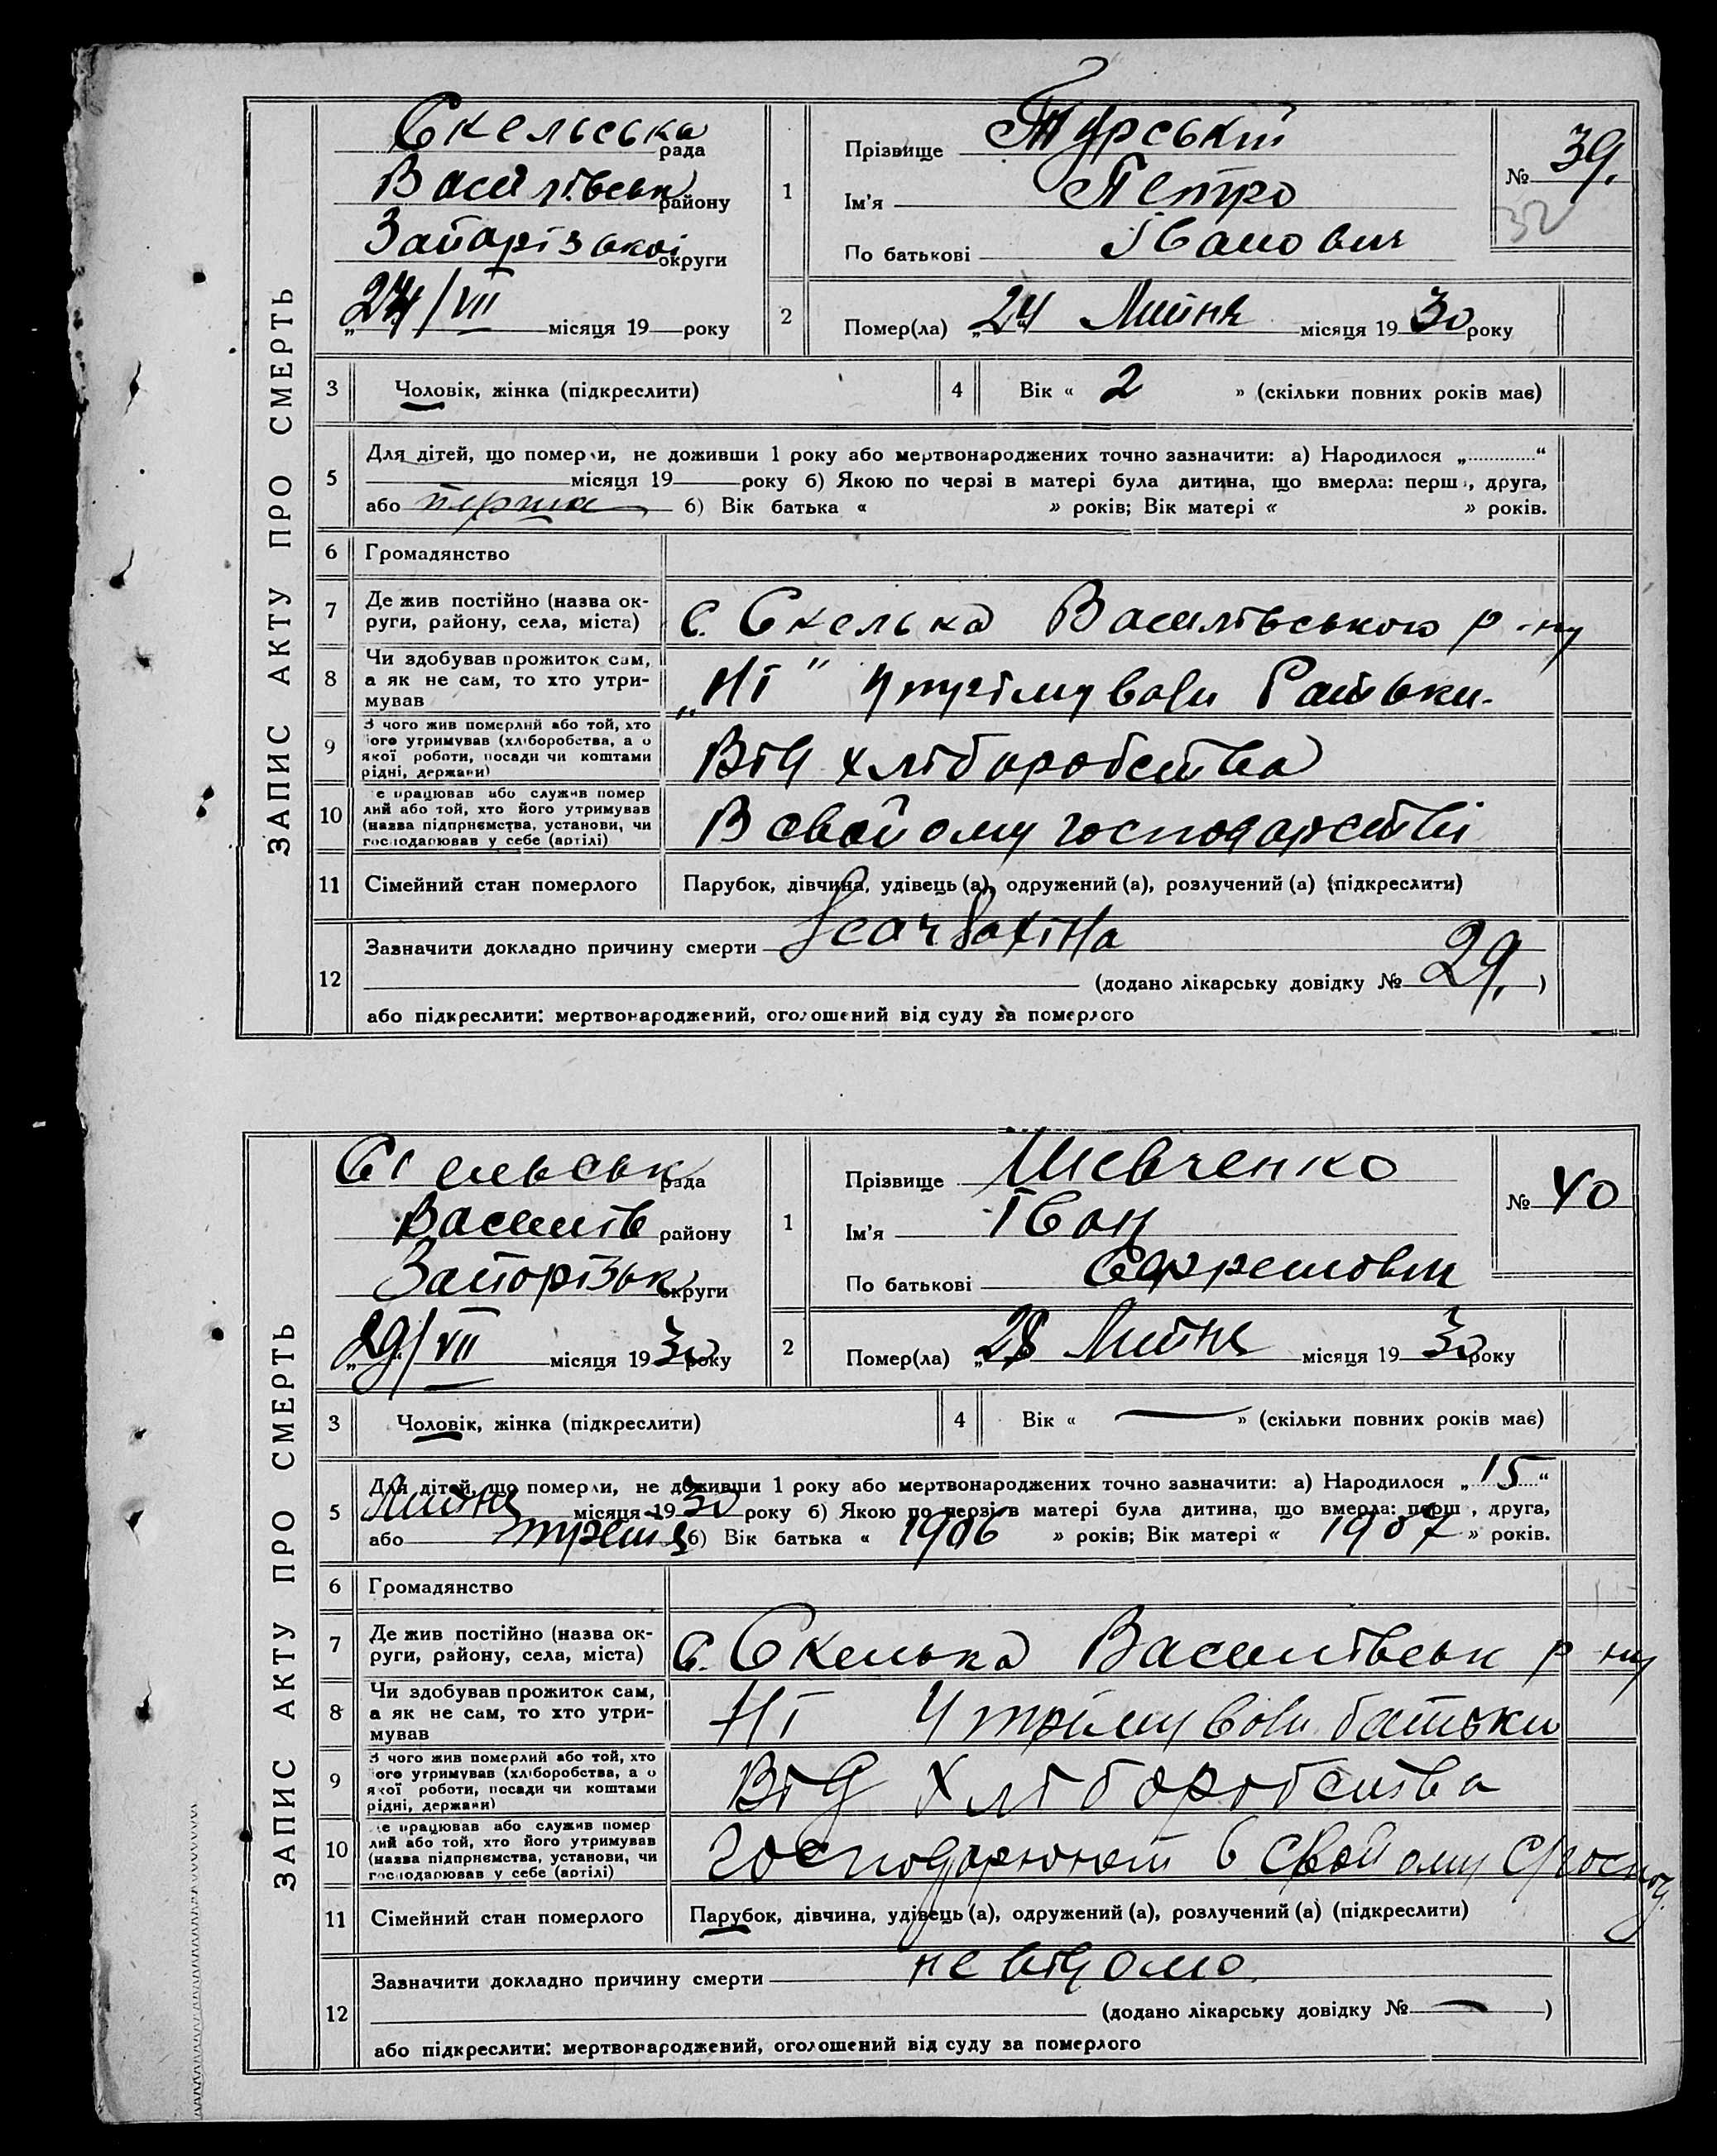 ЗАПИС АКТУ ПРО СМЕРТЬ
Скельська рада
Василівськ району
Запорізької округи
„24/VII місяця 19 року
1
Прізвище Турській
Ім'я Петро
По батькові Іванович
№ 39.
32
2
Помер(ла) „24 Липня місяця 19 30 року
3 Чоловік, жінка (підкреслити)
4 Вік « 2 » (скільки повних років має)
5 Для дітей, що померли, не доживши 1 року або мертвонароджених точно зазначити: а) Народилося „ “
місяця 19 року б) Якою по черзі в матері була дитина, що вмерла: перш , друга,
або перша б) Вік батька « » років; Вік матері « » років.
6 Громадянство
7 Де жив постійно (назва ок-
руги, району, села, міста) с. Скелька Василівського р-ну
8 Чи здобував прожиток сам,
а як не сам, то хто утри-
мував „Ні“ утрімували Батьки.
9 З чого жив померлий або той, хто
ого утримував (хліборобства, а о
якої роботи, посади чи коштами
рідні, держави) Від хліборобства
10 е працював або служив помер
лий або той, хто його утримував
(назва підприємства, установи, чи
господарював у себе (артілі) В свойому господарстві
11 Сімейний стан померлого Парубок, дівчина, удівець (а), одружений (а), розлучений (а) (підкреслити)
12 Зазначити докладно причину смерти
(додано лікарську довідку № 29. )
або підкреслити: мертвонароджений, оголошений від суду за померлого
ЗАПИС АКТУ ПРО СМЕРТЬ
рада
Василів району
Запорізьк округи
„29/VII місяця 19 30 року
1
Прізвище Шевченко
Ім'я Іван
По батькові
№ 40
2
Помер(ла) „28 Липня місяця 19 30 року
3 Чоловік, жінка (підкреслити)
4 Вік « — » (скільки повних років має)
5 Для дітей, що померли, не доживши 1 року або мертвонароджених точно зазначити: а) Народилося „ 15 “
Липня місяця 19 30 року б) Якою по черзі в матері була дитина, що вмерла: перш , друга,
або третя б) Вік батька « 1906 » років; Вік матері « 1907 » років.
6 Громадянство
7 Де жив постійно (назва ок-
руги, району, села, міста) с. Скелька Василівськ р-ну
8 Чи здобував прожиток сам,
а як не сам, то хто утри-
мував Ні Утрімували батьки
9 З чого жив померлий або той, хто
ого утримував (хліборобства, а о
якої роботи, посади чи коштами
рідні, держави) Від Хліборобства
10 е працював або служив помер
лий або той, хто його утримував
(назва підприємства, установи, чи
господарював у себе (артілі) Господарюют в свойому
11 Сімейний стан померлого Парубок, дівчина, удівець (а), одружений (а), розлучений (а) (підкреслити)
12 Зазначити докладно причину смерти невідомо.
(додано лікарську довідку № — )
або підкреслити: мертвонароджений, оголошений від суду за померлого